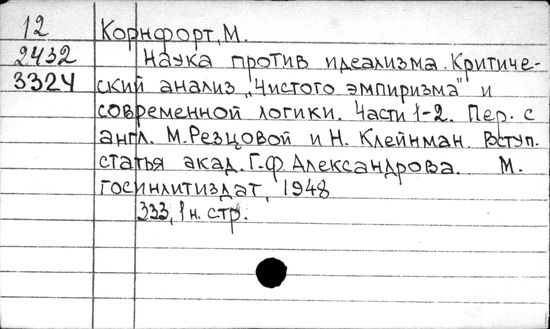 12 Корнфорт, М.
2432 Наука против идеализма. Критиче-
3324 ский анализ „Чистого эмпиризма" и
современной логики. Части 1-2. Пер. с
англ. М. Резцовой и Н. Клейнман. Вступ.
статья акад. Г.Ф. Александрова. М.
Госинлитиздат, 1948
333, 1 н. стр.